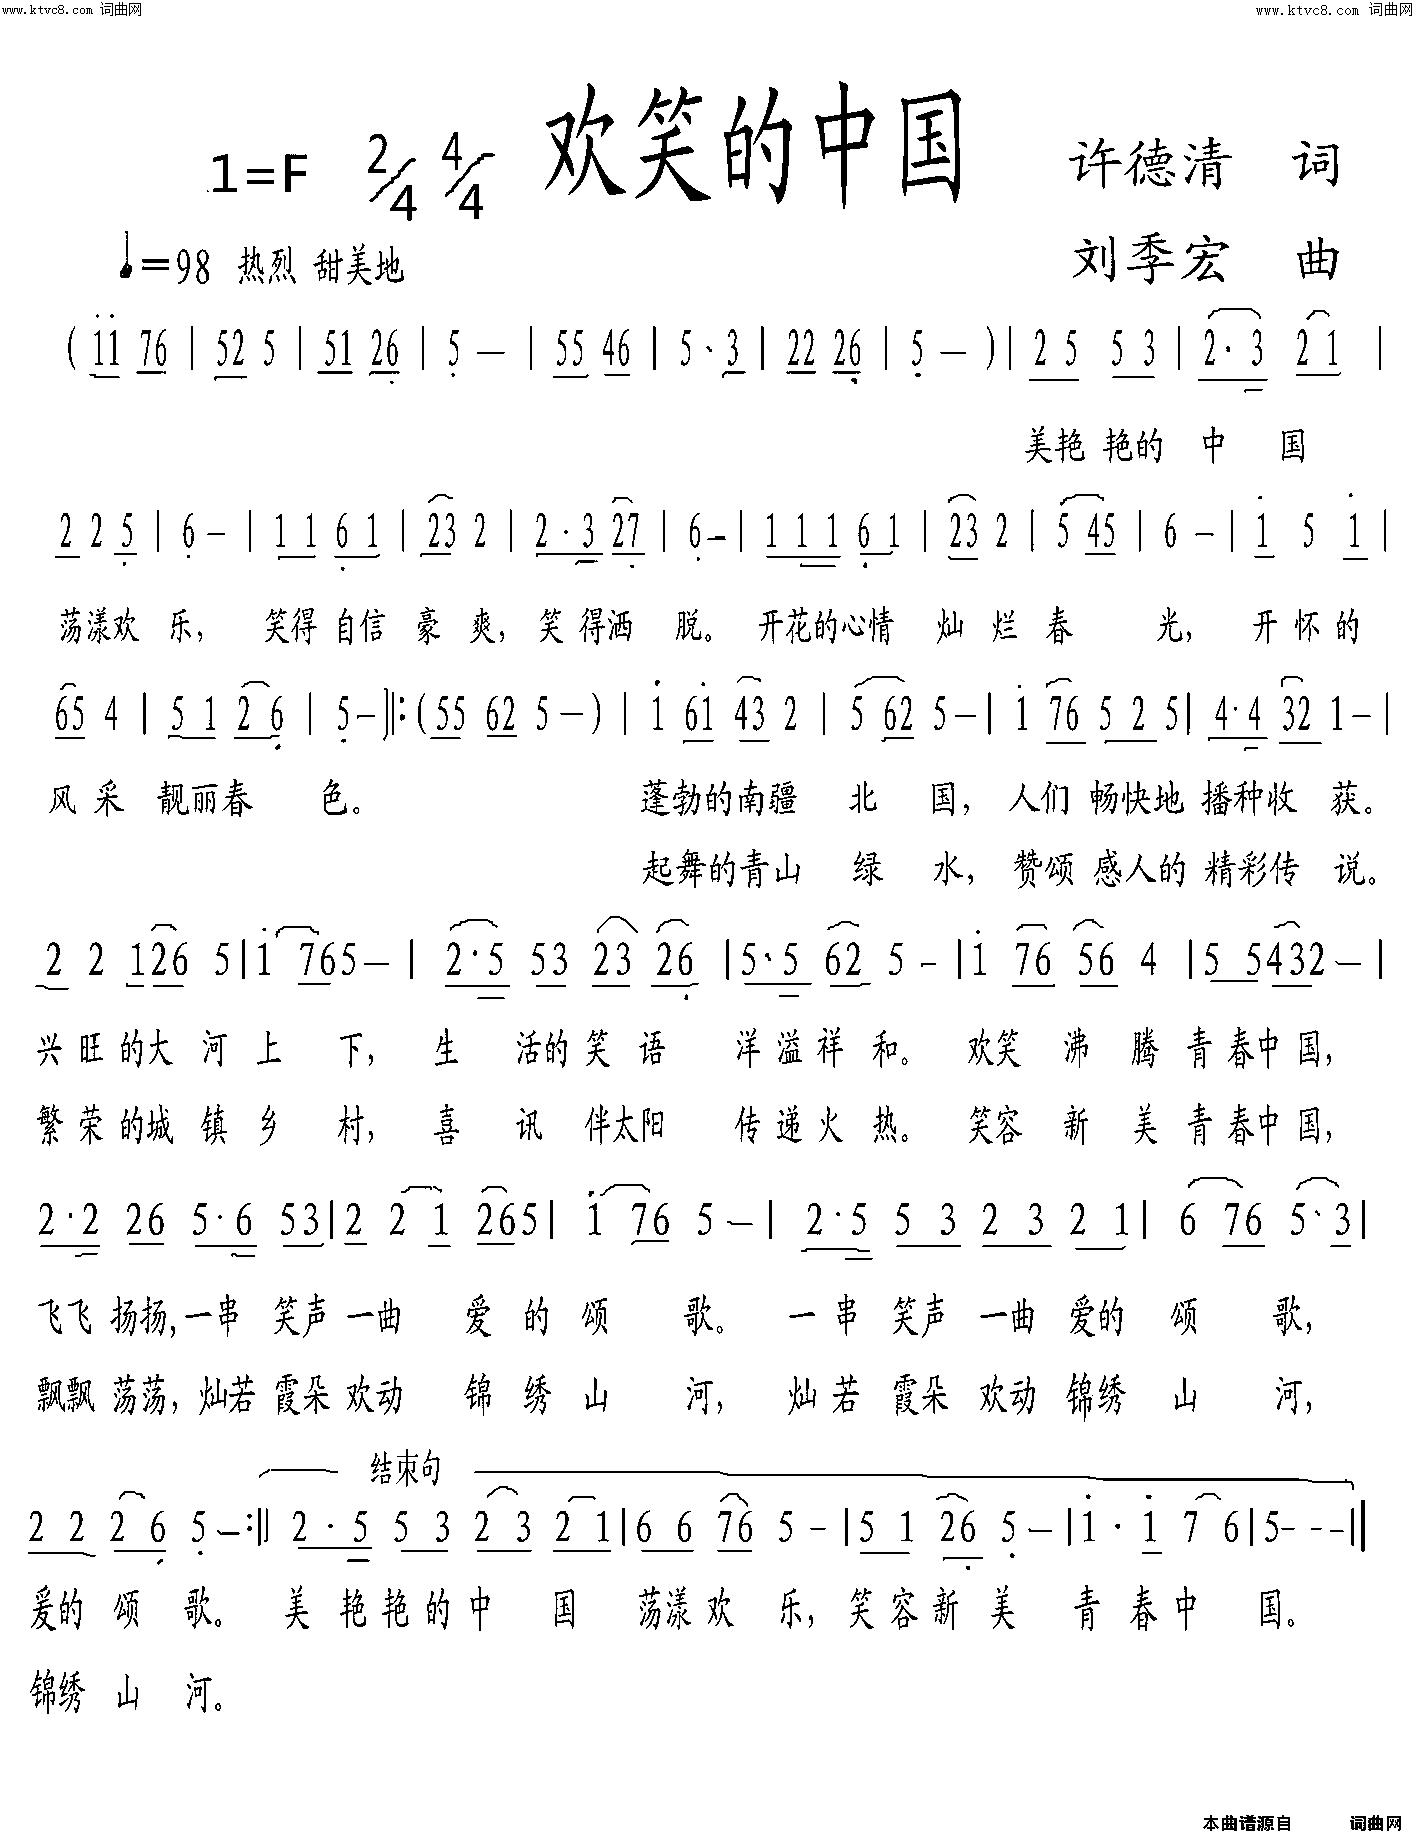 www.ktvc8.com 词曲网 www.ktvc8.com 词曲网
欢笑的中国
1=F 2/4 4/4 许德清 词
♩=98 热烈 甜美地 刘季宏 曲
( i i 7 6 | 5 2 5 | 5 1 2 6 | 5 — | 5 5 4 6 | 5 · 3 | 2 2 2 6 | 5 — ) | 2 5 5 3 | 2 · 3 2 1 |
美艳 艳的 中 国
2 2 5 | 6 — | 1 1 6 1 | 2 3 2 | 2 · 3 2 7 | 6 — | 1 1 1 6 1 | 2 3 2 | 5 4 5 | 6 — | i 5 i |
荡漾欢 乐, 笑得 自信 豪 爽, 笑 得洒 脱。 开花的心情 灿 烂 春 光, 开 怀 的
6 5 4 | 5 1 2 6 | 5 — ‖: ( 5 5 6 2 5 — ) | i 6 i 4 3 2 | 5 6 2 5 — | i 7 6 5 2 5 | 4 · 4 3 2 1 — |
风 采 靓丽春 色。 蓬勃的南疆 北 国, 人们 畅快地 播种收 获。
起舞的青山 绿 水, 赞颂 感人的 精彩传 说。
2 2 1 2 6 5 | i 7 6 5 — | 2 · 5 5 3 2 3 2 6 | 5 · 5 6 2 5 — | i 7 6 5 6 4 | 5 5 4 3 2 — |
兴 旺 的大 河 上 下, 生 活的 笑 语 洋 溢 祥 和。 欢笑 沸 腾 青 春中国,
繁 荣 的城 镇 乡 村, 喜 讯 伴太阳 传 递 火 热。 笑容 新 美 青 春中国,
2 · 2 2 6 5 · 6 5 3 | 2 2 1 2 6 5 | i 7 6 5 — | 2 · 5 5 3 2 3 2 1 | 6 7 6 5 · 3 |
飞飞 扬扬,一串 笑声 一曲 爱 的 颂 歌。 一 串 笑声 一曲 爱的 颂 歌,
飘飘 荡荡, 灿若 霞朵 欢动 锦 绣 山 河, 灿 若 霞朵 欢动 锦绣 山 河,
结束句
2 2 2 6 5 — :‖ 2 · 5 5 3 2 3 2 1 | 6 6 7 6 5 — | 5 1 2 6 5 — | i · i 7 6 | 5 - - - ‖
爱的 颂 歌。 美 艳 艳 的 中 国 荡漾 欢 乐, 笑 容 新 美 青 春 中 国。
锦绣 山 河。
本曲谱源自 词曲网